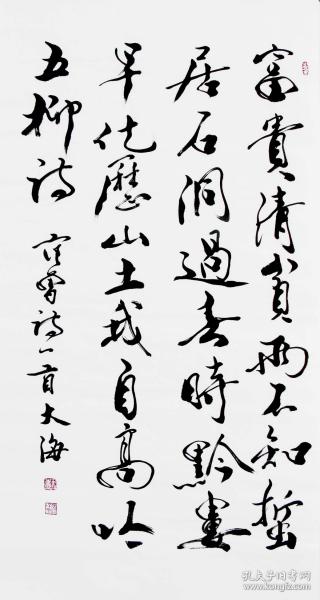 富貴清貧兩不知蟄
居石洞過春時黔婁
早化歷山土我自高吟
五柳詩
詩一首大海
孔夫子旧书网